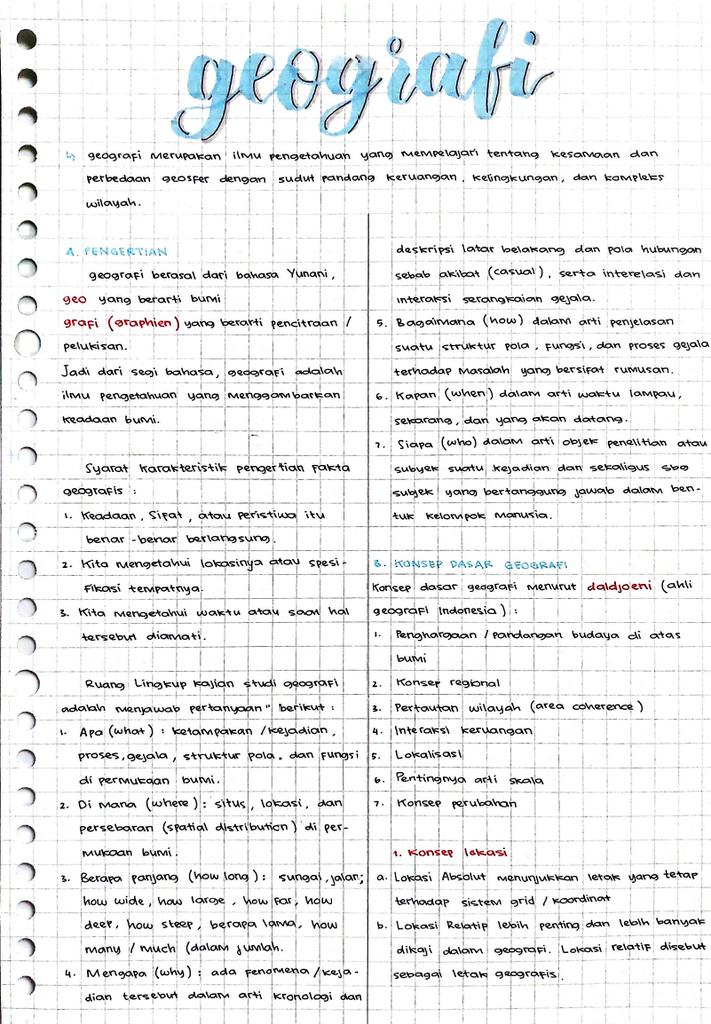 geografi
↳ geografi merupakan ilmu pengetahuan yang mempelajari tentang kesamaan dan
perbedaan geosfer dengan sudut pandang keruangan, kelingkungan, dan kompleks
wilayah.
A. PENGERTIAN
geografi berasal dari bahasa Yunani,
geo yang berarti bumi
grafi (graphien) yang berarti pencitraan /
pelukisan.
Jadi dari segi bahasa, geografi adalah
ilmu pengetahuan yang menggambarkan
keadaan bumi.
Syarat karakteristik pengertian fakta
geografis :
1. Keadaan, Sifat, atau Peristiwa itu
benar-benar berlangsung.
2. Kita mengetahui lokasinya atau spesi-
fikasi tempatnya.
3. Kita mengetahui waktu atau saat hal
tersebut diamati.
Ruang Lingkup kajian studi geografi
adalah menjawab pertanyaan" berikut :
1. Apa (what) : ketampakan / kejadian,
proses, gejala, struktur pola, dan fungsi
di permukaan bumi.
2. Di mana (where) : situs, lokasi, dan
persebaran (spatial distribution) di per-
mukaan bumi.
3. Berapa panjang (how long) : sungai, jalan;
how wide, how large, how far, how
deep, how steep, berapa lama, how
many / much (dalam jumlah.
4. Mengapa (why) : ada fenomena / keja-
dian tersebut dalam arti kronologi dan
deskripsi latar belakang dan pola hubungan
sebab akibat (casual), serta interelasi dan
interaksi serangkaian gejala.
5. Bagaimana (how) dalam arti penjelasan
suatu struktur pola, fungsi, dan proses gejala
terhadap masalah yang bersifat rumusan.
6. Kapan (when) dalam arti waktu lampau,
sekarang, dan yang akan datang.
7. Siapa (who) dalam arti objek penelitian atau
subyek suatu kejadian dan sekaligus sbg
subjek yang bertanggung jawab dalam ben-
tuk kelompok manusia.
B. KONSEP DASAR GEOGRAFI
Konsep dasar geografi menurut daldjoeni (ahli
geografi Indonesia) :
1. Penghargaan / Pandangan budaya di atas
bumi
2. Konsep regional
3. Pertautan wilayah (area coherence)
4. Interaksi keruangan
5. Lokalisasi
6. Pentingnya arti skala
7. Konsep perubahan
1. Konsep lokasi
a. Lokasi Absolut menunjukkan letak yang tetap
terhadap sistem grid / koordinat
b. Lokasi Relatif lebih penting dan lebih banyak
dikaji dalam geografi. Lokasi relatif disebut
sebagai letak geografis.